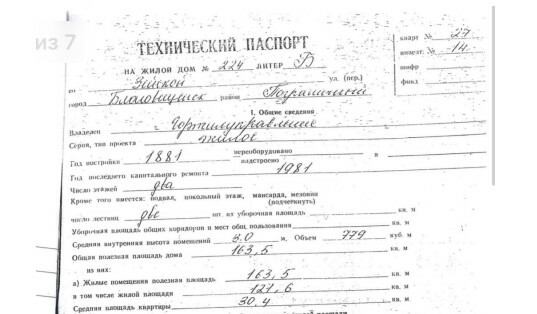 из 7
ТЕХНИЧЕСКИЙ ПАСПОРТ
кварт № 27
инвент. № 14
шифр
фонд
НА ЖИЛОЙ ДОМ № 224 ЛИТЕР Б
по Зейской ул. (пер.)
город Благовещенск район Пограничный
I. Общие сведения
Владелец Горжилуправление
Серия, тип проекта жилое
Год постройки 1881 переоборудовано надстроено в
Год последнего капитального ремонта 1981
Число этажей два
Кроме того имеется: подвал, цокольный этаж, мансарда, мезонин
(подчеркнуть)
число лестниц две шт. их уборочная площадь кв. м
Уборочная площадь общих коридоров и мест общ. пользования кв. м
Средняя внутренняя высота помещений 3.0 м. Объем 779 куб. м
Общая полезная площадь дома 163,5 кв. м
из них:
а) Жилые помещения полезная площадь 163,5 кв. м
в том числе жилой площади 121,6 кв. м
Средняя площадь квартиры 30,4 кв. м